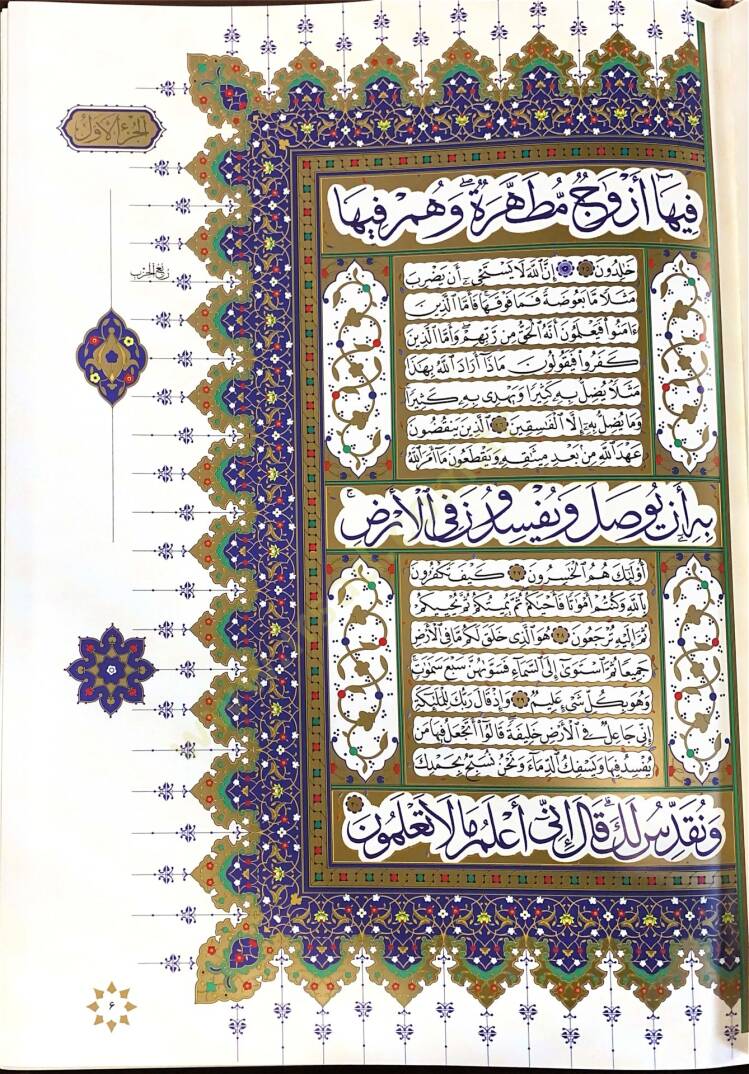 الجزء الاول
فِيهَآ أَزْوَٰجٌ مُّطَهَّرَةٌ ۖ وَهُمْ فِيهَا
خَٰلِدُونَ ٢٥ إِنَّ ٱللَّهَ لَا يَسْتَحْىِۦٓ أَن يَضْرِبَ
ربع الحزب
مَثَلًا مَّا بَعُوضَةً فَمَا فَوْقَهَا فَأَمَّا ٱلَّذِينَ
ءَامَنُوا۟ فَيَعْلَمُونَ أَنَّهُ ٱلْحَقُّ مِن رَّبِّهِمْ ۖ وَأَمَّا ٱلَّذِينَ
كَفَرُوا۟ فَيَقُولُونَ مَاذَآ أَرَادَ ٱللَّهُ بِهَٰذَا
مَثَلًا يُضِلُّ بِهِۦ كَثِيرًا وَيَهْدِى بِهِۦ كَثِيرًا
وَمَا يُضِلُّ بِهِۦٓ إِلَّا ٱلْفَٰسِقِينَ ٢٦ ٱلَّذِينَ يَنقُضُونَ
عَهْدَ ٱللَّهِ مِنۢ بَعْدِ مِيثَٰقِهِۦ وَيَقْطَعُونَ مَآ أَمَرَ ٱللَّهُ
بِهِۦٓ أَن يُوصَلَ وَيُفْسِدُونَ فِى ٱلْأَرْضِ ۚ
أُو۟لَٰٓئِكَ هُمُ ٱلْخَٰسِرُونَ ٢٧ كَيْفَ تَكْفُرُونَ
بِٱللَّهِ وَكُنتُمْ أَمْوَٰتًا فَأَحْيَٰكُمْ ثُمَّ يُمِيتُكُمْ ثُمَّ يُحْيِيكُمْ
ثُمَّ إِلَيْهِ تُرْجَعُونَ ٢٨ هُوَ ٱلَّذِى خَلَقَ لَكُم مَّا فِى ٱلْأَرْضِ
جَمِيعًا ثُمَّ ٱسْتَوَىٰٓ إِلَى ٱلسَّمَآءِ فَسَوَّىٰهُنَّ سَبْعَ سَمَٰوَٰتٍ
وَهُوَ بِكُلِّ شَىْءٍ عَلِيمٌ ٢٩ وَإِذْ قَالَ رَبُّكَ لِلْمَلَٰٓئِكَةِ
إِنِّى جَاعِلٌ فِى ٱلْأَرْضِ خَلِيفَةً قَالُوٓا۟ أَتَجْعَلُ فِيهَا مَن
يُفْسِدُ فِيهَا وَيَسْفِكُ ٱلدِّمَآءَ وَنَحْنُ نُسَبِّحُ بِحَمْدِكَ
وَنُقَدِّسُ لَكَ ۖ قَالَ إِنِّىٓ أَعْلَمُ مَا لَا تَعْلَمُونَ ٣٠
۶